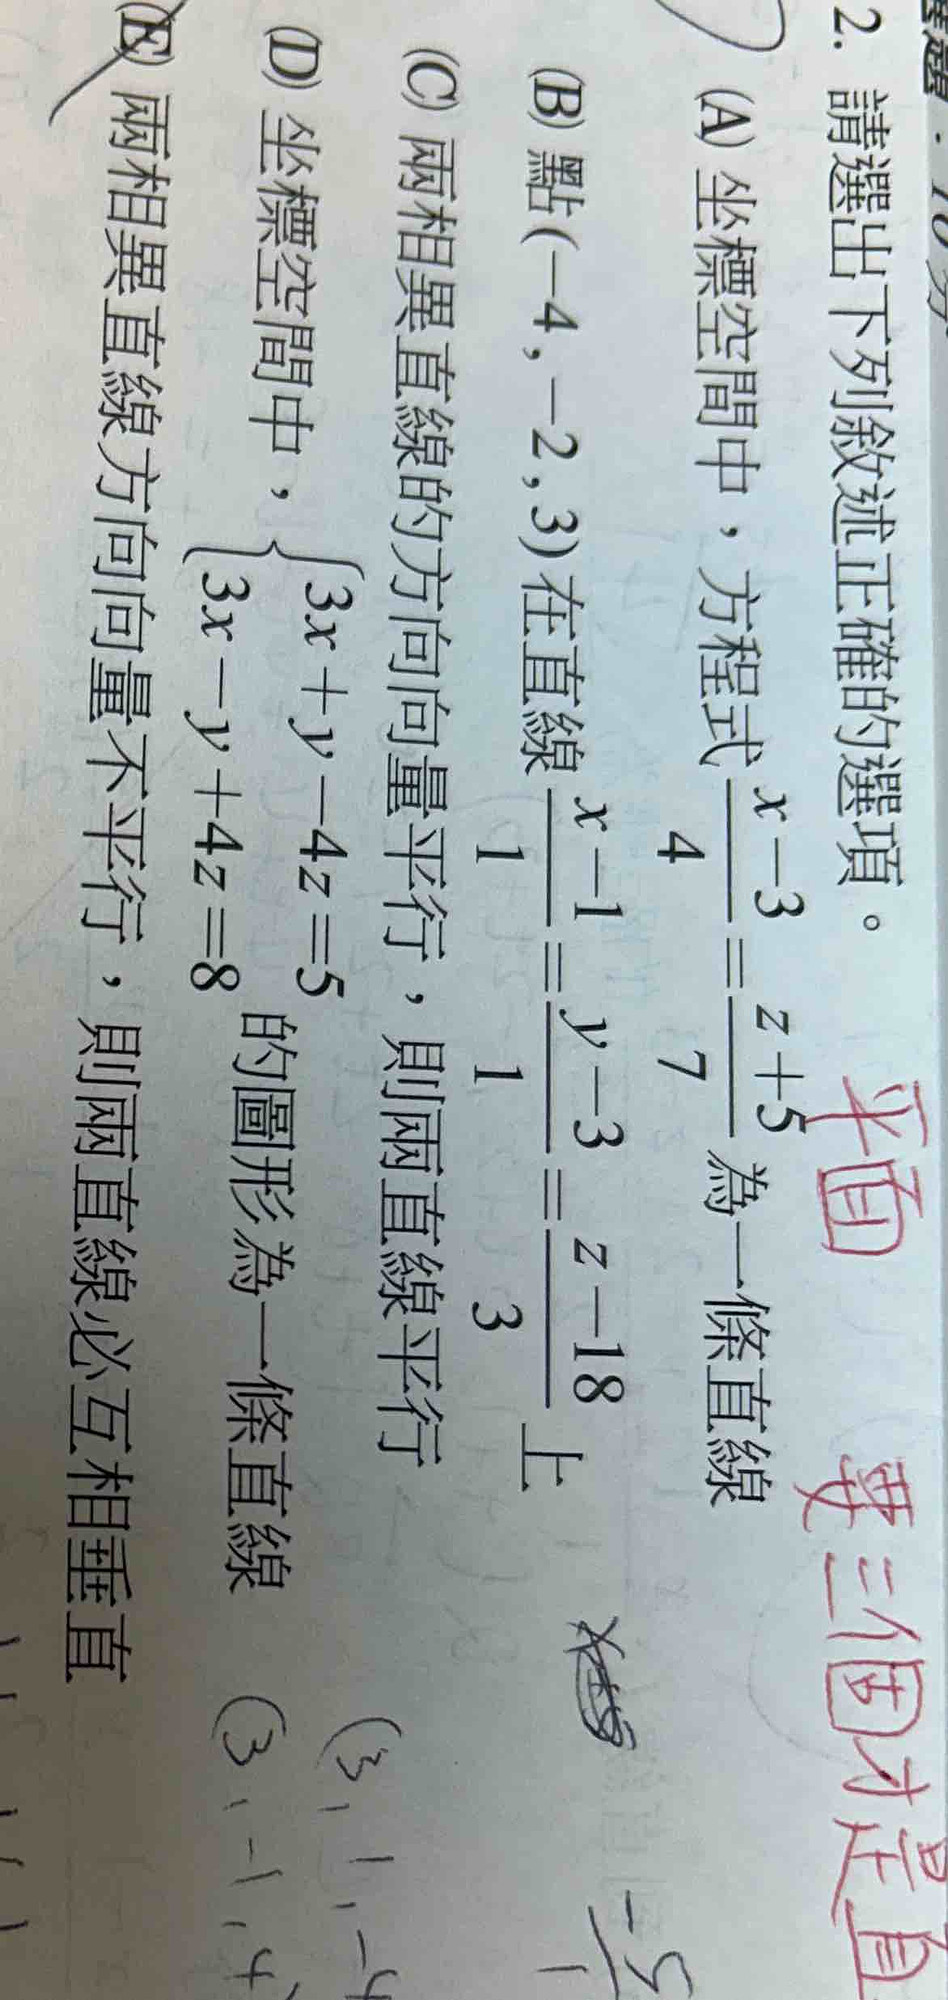 2. 請選出下列敘述正確的選項。
平面 要三個才是直
(A) 坐標空間中，方程式 x−3/4 = z+5/7 為一條直線
(B) 點(−4,−2,3)在直線 x−1/1 = y−3/1 = z−18/3 上
−5/1
(C) 兩相異直線的方向向量平行，則兩直線平行
(D) 坐標空間中，{3x+y−4z=5
3x−y+4z=8 的圖形為一條直線
(3,1,−4
(3,−1,4)
(E) 兩相異直線方向向量不平行，則兩直線必互相垂直